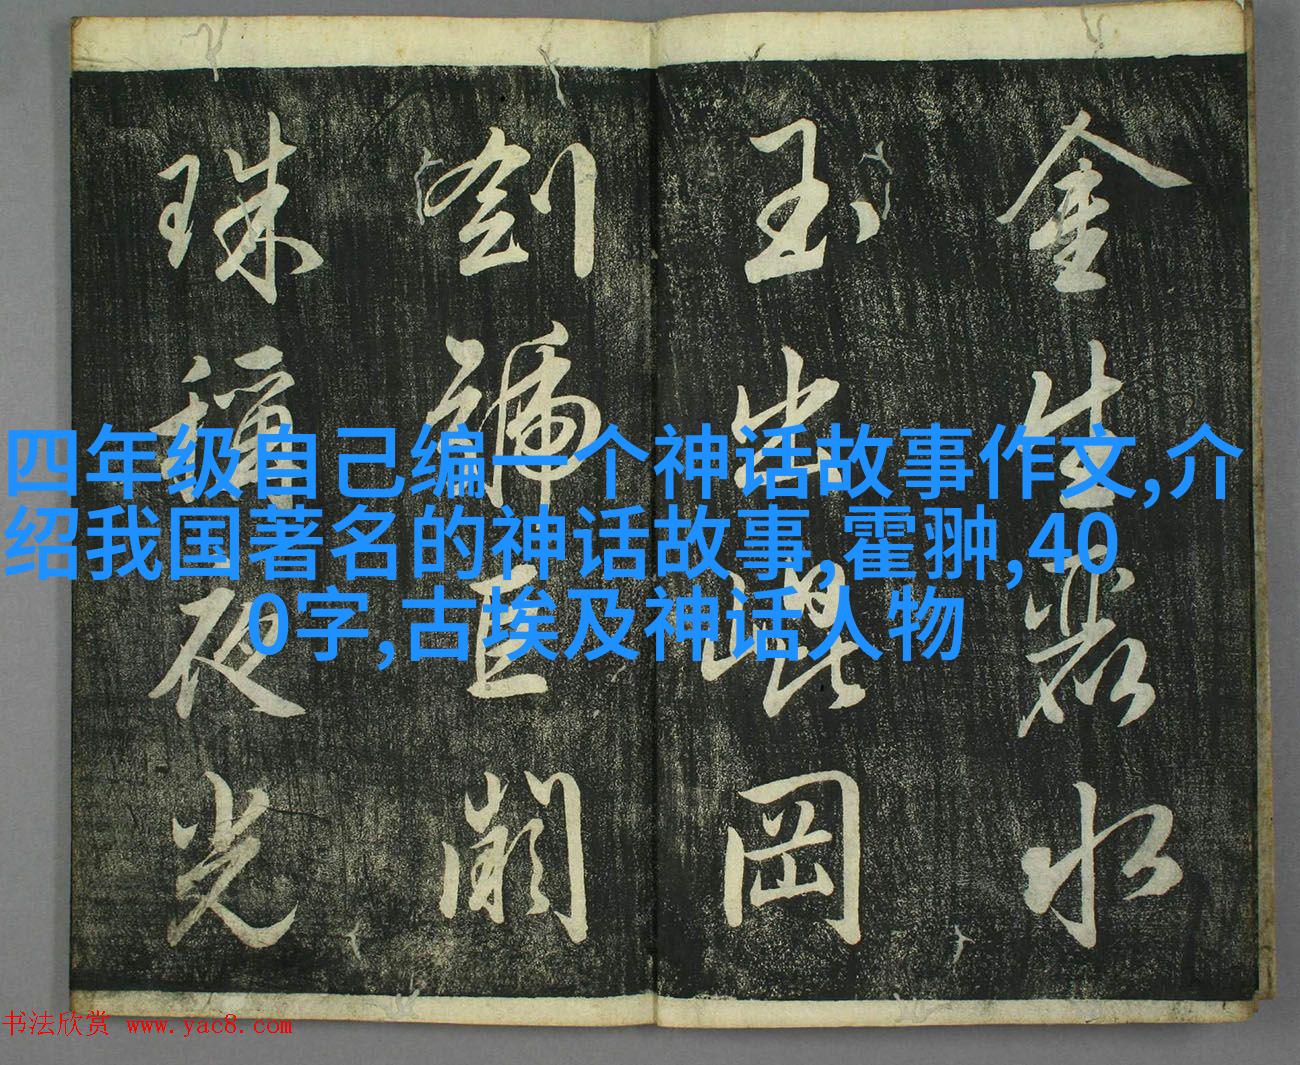 金生麗水
玉出崑岡
劍號巨闕
珠稱夜光
四年级自己编一个神话故事作文,介
绍我国著名的神话故事,霍翀,40
0字,古埃及神话人物
书法欣赏 www.yac8.com